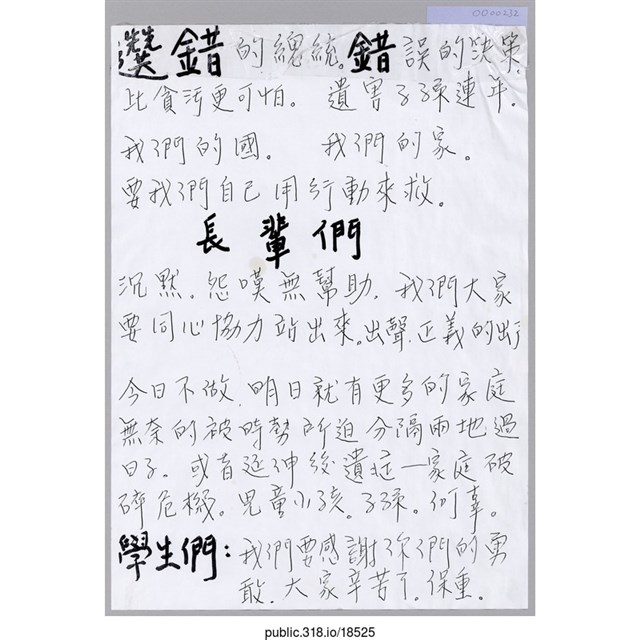 0000232
選錯的總統。錯誤的決策。
比貪污更可怕。 遺害子孫連年。
我們的國。 我們的家。
要我們自己用行動來救。
長輩們
沉默。怨嘆無幫助. 我們大家
要同心協力站出來。出聲.正義的出
今日不做.明日就有更多的家庭
無奈的被時勢所迫分隔兩地過
日子. 或者延伸後遺症一家庭破
碎危機。兒童小孩。子孫。何辜。
學生們:我們要感謝你們的勇
敢.大家辛苦了.保重。
public.318.io/18525